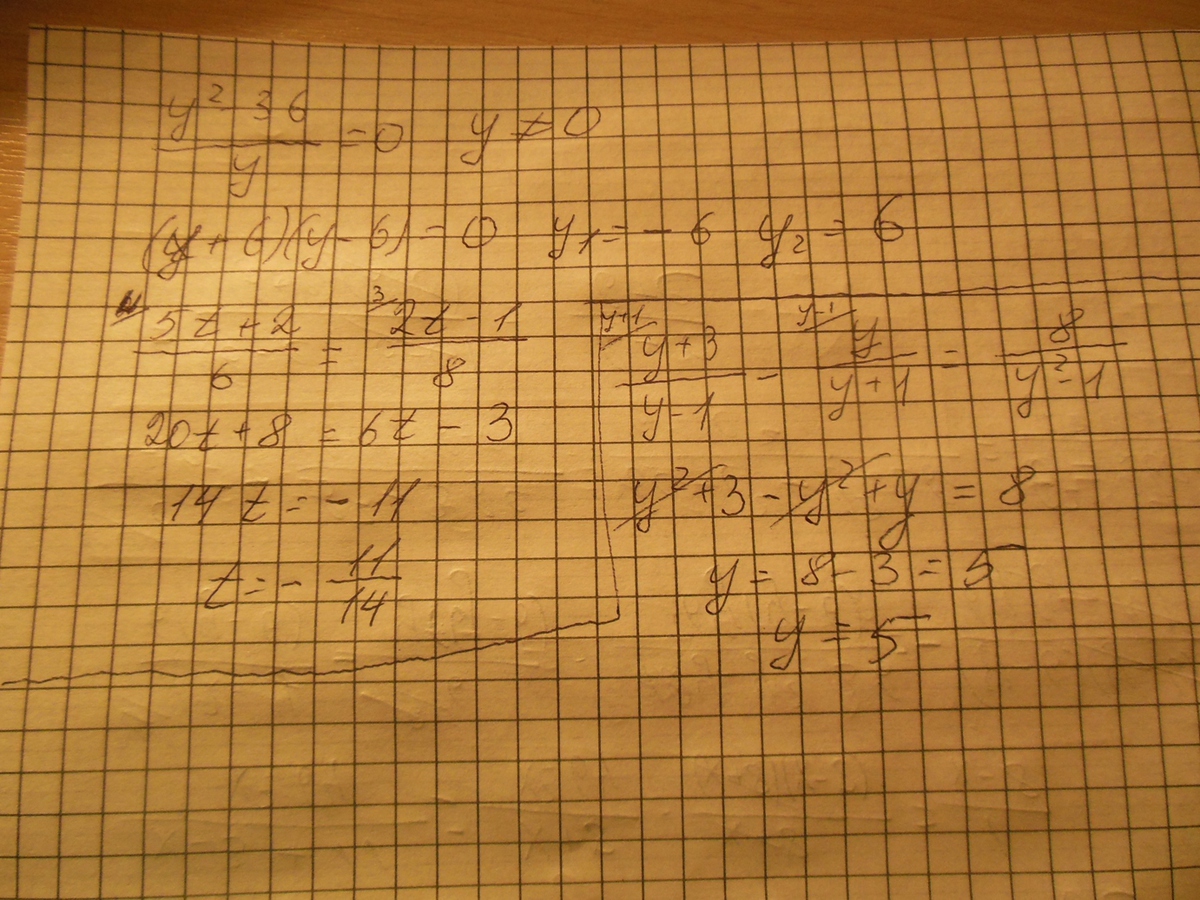 y² - 36 / y = 0   y ≠ 0
(y + 6)(y - 6) = 0   y₁ = - 6   y₂ = 6
4/ 5t + 2 / 6 = 3/ 2t - 1 / 8
20t + 8 = 6t - 3
14t = - 11
t = - 11/14
y+1/ y + 3 / y - 1 - y-1/ y / y + 1 = 8 / y² - 1
y² + 3 - y² + y = 8
y = 8 - 3 = 5
y = 5